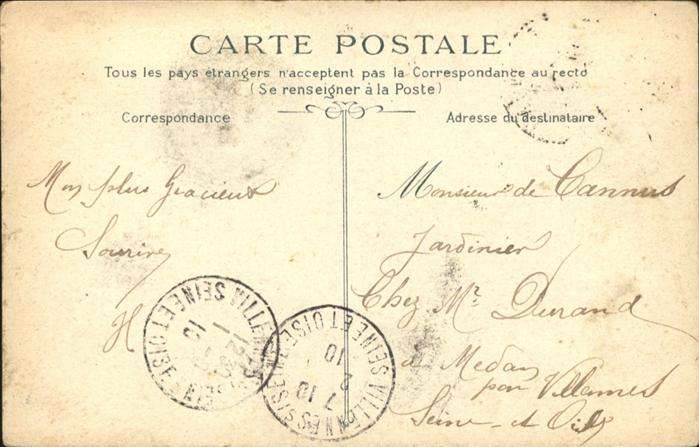 CARTE POSTALE
Tous les pays étrangers n'acceptent pas la Correspondance au recto
(Se renseigner à la Poste)
Correspondance
Adresse du destinataire
Mon plus Gracieux
Sourire
H
Monsieur de Cannus
Jardinier
Chez Mr. Durand
à Medan
par Villennes
Seine et Oise
SEINE ET OISE
12
1
15
VILLENNES S SEINE
SEINE ET OISE
7 10
2
10